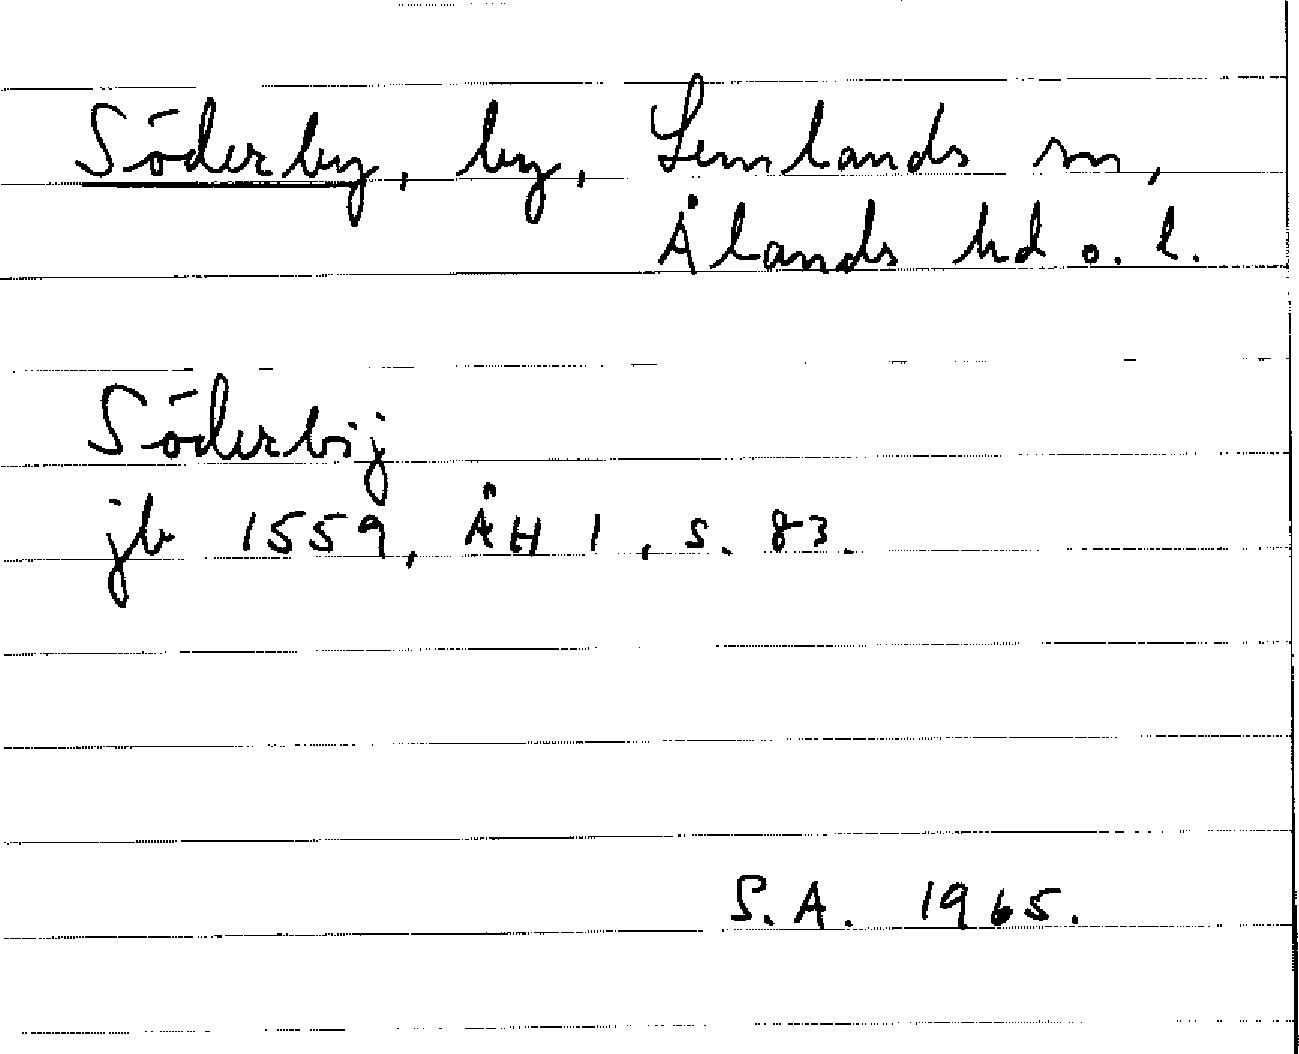 Söderby, by, Lemlands sn,
Ålands hd o. l.
Söderbij
jb 1559, ÅH 1, s. 83.
S.A. 1965.